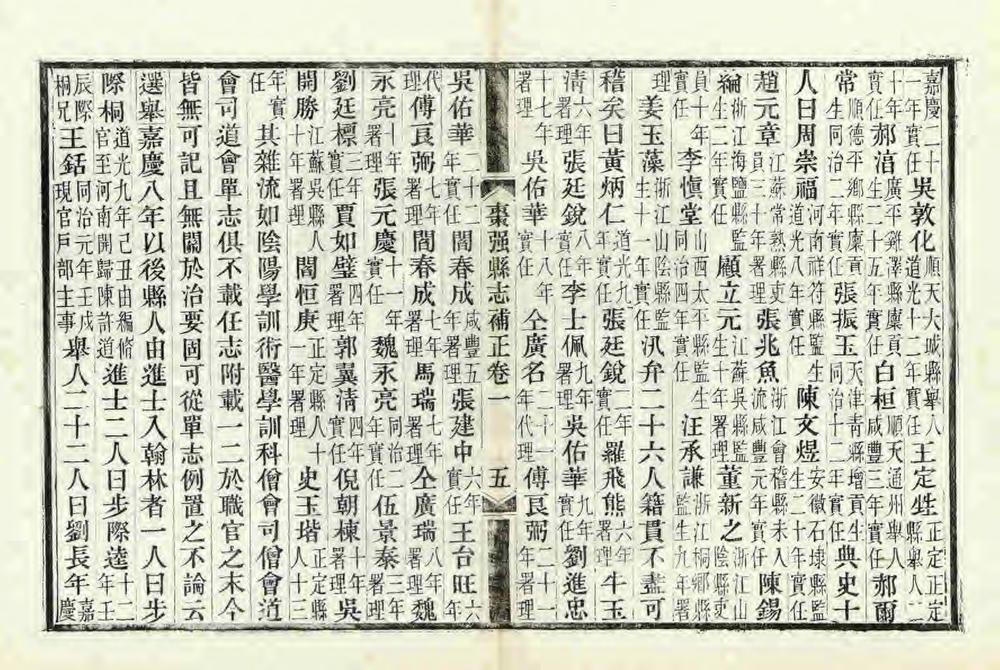 嘉慶二十一年實任吳敦化順天大城縣舉人道光十二年實任王定甡正定正定縣舉人二
十年實任郝湻廣平雞澤縣廩貢生二十五年實任白桓順天通州舉人咸豐三年實任郝爾
常順德平鄉縣廩貢生同治二年實任張振玉天津青縣增貢生同治十二年實任典史十
人曰周崇福河南祥符縣監生道光八年實任陳文煜安徽石埭縣監生二十年實任
趙元章江蘇常熟縣吏員三十年署理張兆魚浙江會稽縣未入流咸豐元年實任陳錫
綸浙江海鹽縣監生二年實任顧立元江蘇吳縣監生二年署理董新之浙江山陰縣吏
員十年實任李愼堂山西太平縣監生同治四年實任汪承謙浙江桐鄉縣監生九年署
理姜玉藻浙江山陰縣監生十一年實任汛弁二十六人籍貫不盡可
稽矣曰黃炳仁道光九年實任張廷銳二年實任羅飛熊六年署理牛玉
清六年實任張廷銳八年署理李士佩九年署理吳佑華九年實任劉進忠
十七年署理吳佑華十八年實任仝廣名二十一年代理傅良弼二十一年署理
棗强縣志補正卷一 五
吳佑華二十二年實任閻春成咸豐五年署理張建中六年實任王台旺六年
代理傅良弼七年署理閻春成七年實任馬瑞七年署理仝廣瑞八年署理魏
永亮十年署理張元慶十一年實任魏永亮同治二年實任伍景泰三年署理
劉廷標三年實任賈如璧四年署理郭異清四年實任倪朝棟十年署理吳
開勝江蘇吳縣人十年署理閻恒庚正定縣人十一年署理史玉堦正定縣人十三
年實任其雜流如陰陽學訓術醫學訓科僧會司僧會道
會司道會單志俱不載任志附載一二於職官之末今
皆無可記且無關於治要固可從單志例置之不論云
選舉嘉慶八年以後縣人由進士入翰林者一人曰步
際桐道光九年己丑由編修官至河南開歸陳許道進士二人曰步際逵十二年壬
辰際桐兄王銛同治元年壬戌現官戶部主事舉人二十二人曰劉長年嘉慶